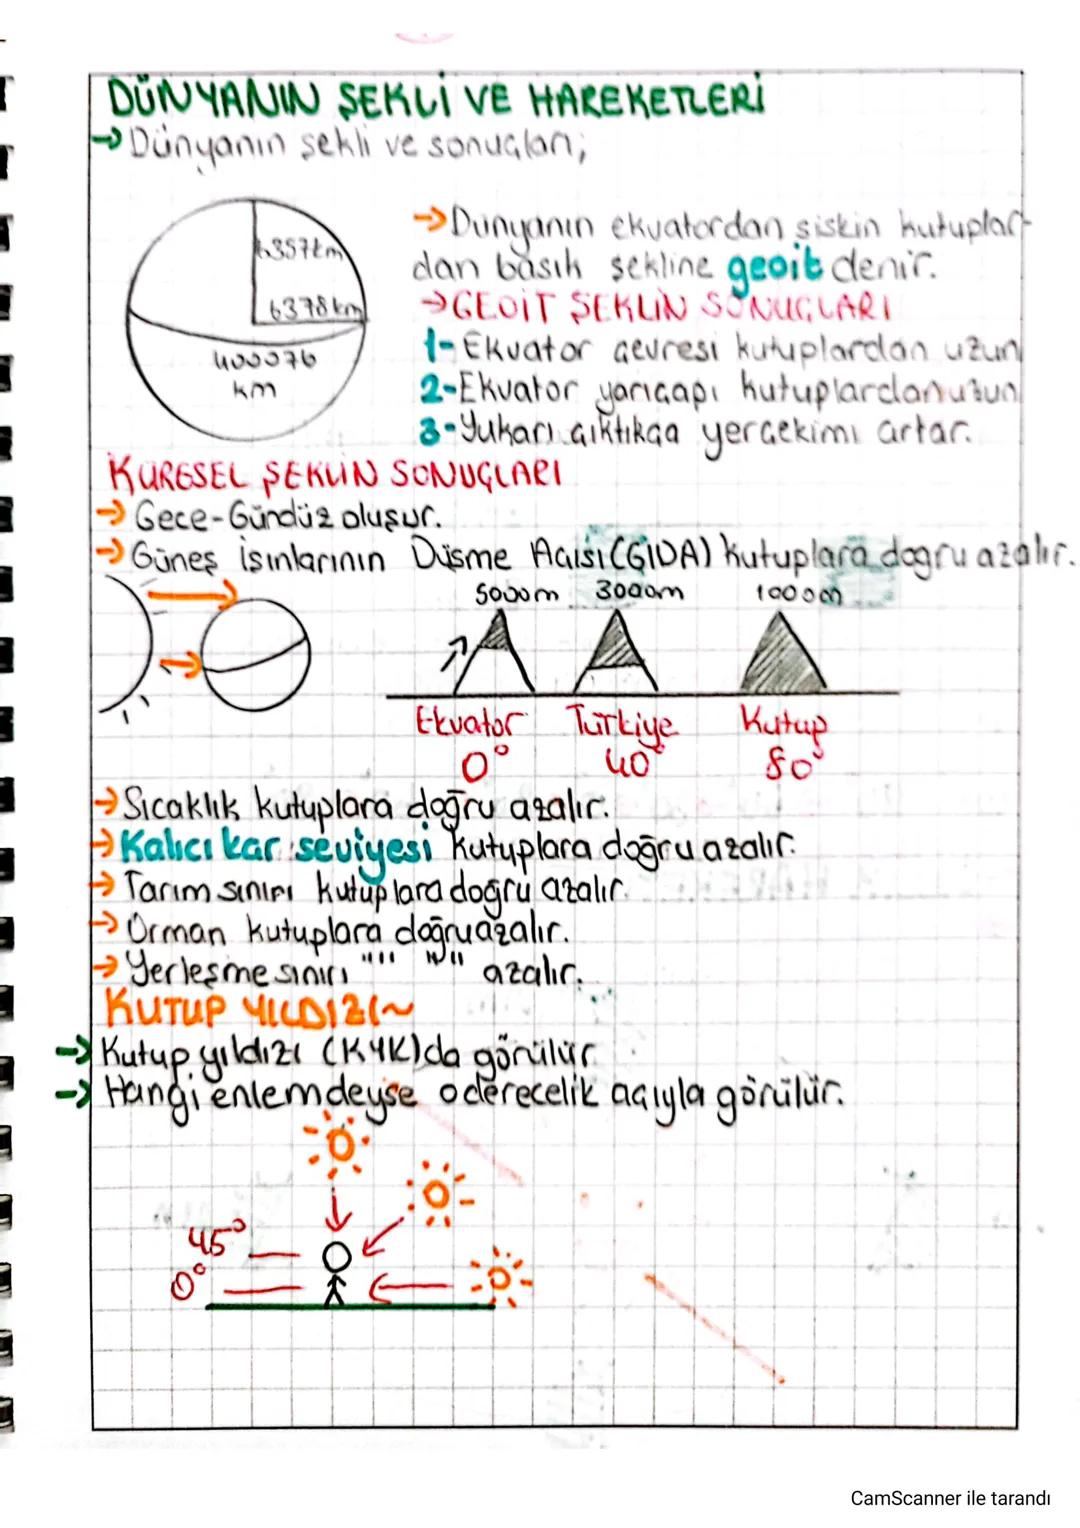 DÜNYANIN ŞEKLİ VE HAREKETLERİ
→ Dünyanın şekli ve sonuçları;
6357km
6378 km
400076
km
→ Dünyanın ekvatordan şiskin kutuplar-
dan basık şekline geoit denir.
→ GEOİT ŞEKLİN SONUÇLARI
1- Ekvator çevresi kutuplardan uzun
2- Ekvator yarıçapı kutuplardan uzun
3- Yukarı çıktıkça yerçekimi artar.
KÜRESEL ŞEKLİN SONUÇLARI
→ Gece-Gündüz oluşur.
→ Güneş Işınlarının Düşme Açısı (GIDA) kutuplara dogru azalır.
5000m 3000m 1000m
Ekvator Türkiye Kutup
0° 40° 80°
→ Sıcaklık kutuplara doğru azalır.
→ Kalıcı kar seviyesi kutuplara doğru azalır.
→ Tarım sınırı kutuplara doğru azalır.
→ Orman kutuplara doğru azalır.
→ Yerleşme sınırı "" "" azalır.
KUTUP YILDIZI~
→ Kutup yıldızı (KYK)da görülür.
→ Hangi enlemdeyse o derecelik açıyla görülür.
45°
0°
CamScanner ile tarandı